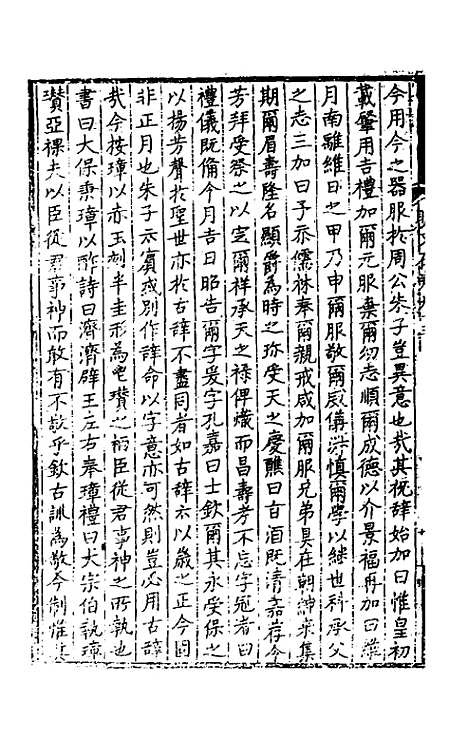 今用今之器服於周公朱子豈異意也哉其祝辭始加曰惟皇初
載肇用吉禮加爾元服棄爾幼志順爾成德以介景福再加曰
月南離維日之甲乃申爾服敬爾威儀慎爾學以継也科承父
之志三加曰予忝儒林奉爾親戒咸加爾服兄弟具在朝紳來集
期爾眉壽隆名顯爵為時之珎受天之慶醮曰旨酒既清嘉荐令
芳拜受祭之以定爾祥承天之祿俾熾而昌壽考不忘字冠者曰
禮儀既俻今月吉日昭告爾字爰字孔嘉曰士欽爾其永受保之
以揚芳聲於聖世亦於古辞不盡同者如古辞云以歲之正今固
非正月也朱子云賓或別作辞命以字意亦可然則豈必用古辞
哉今按璋以赤玉刾半圭形為瓚之柄臣從君事神之所執也
書曰大保秉璋以酢詩曰濟濟辟王左右奉璋禮曰大宗伯執璋
瓚亞祼夫以臣從君事神而敢有不敬乎欽古訓為敬今制惟